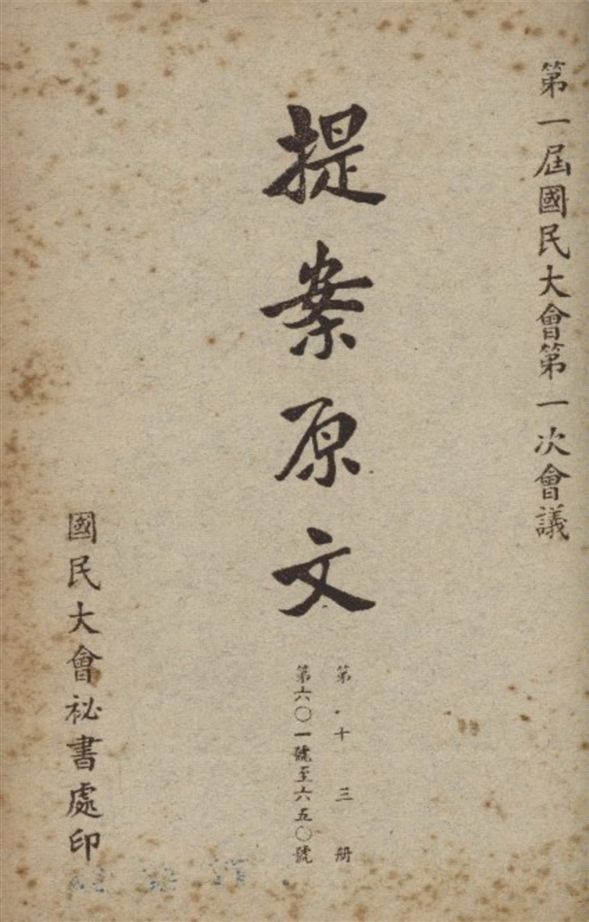 第一屆國民大會第一次會議
提案原文
第十三册
第六〇一號至六五〇號
國民大會祕書處印